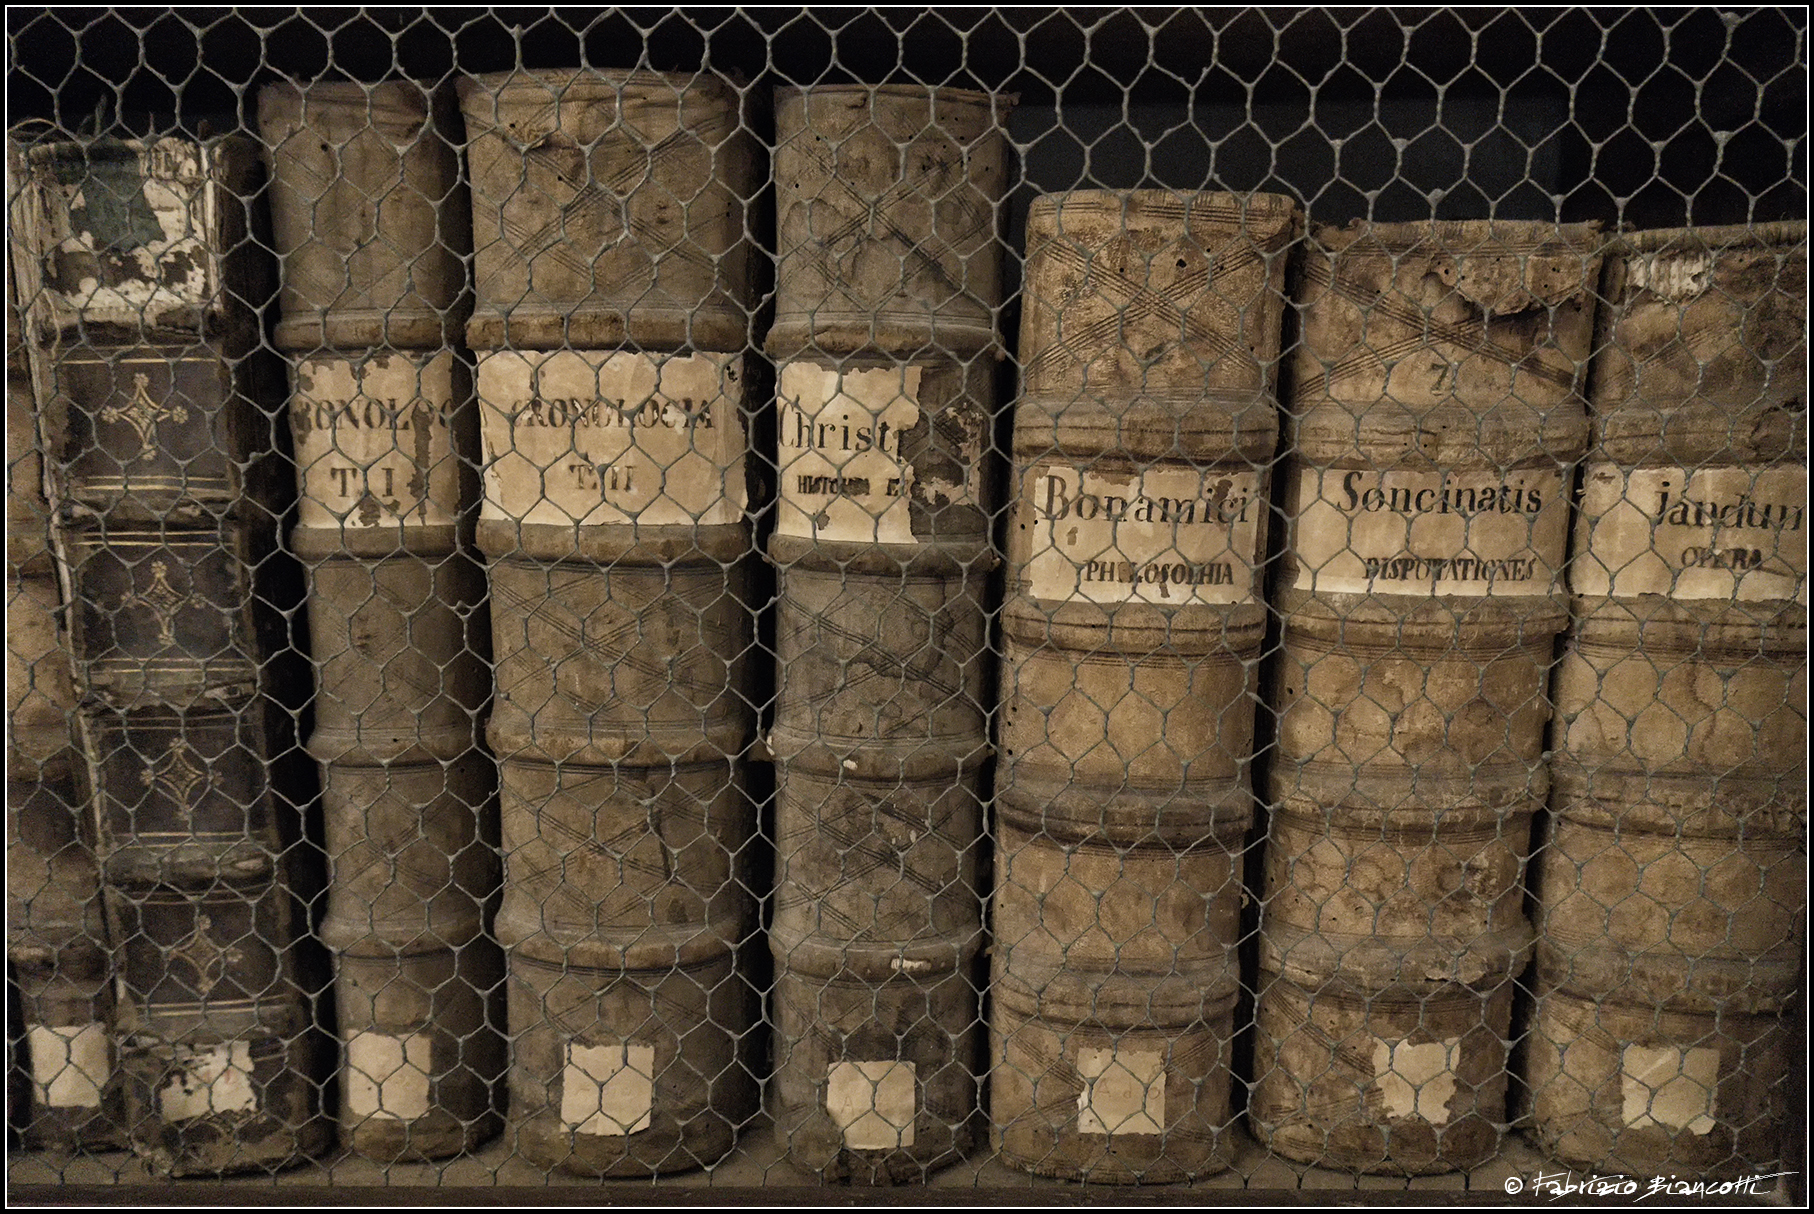 RONOLOG
T. I
CRONOLOGIA
T. II
Christ
HISTORIA E
Bonamici
PHILOSOPHIA
7
Soncinatis
DISPUTATIONES
Jandun
OPERA
© Fabrizio Biancotti